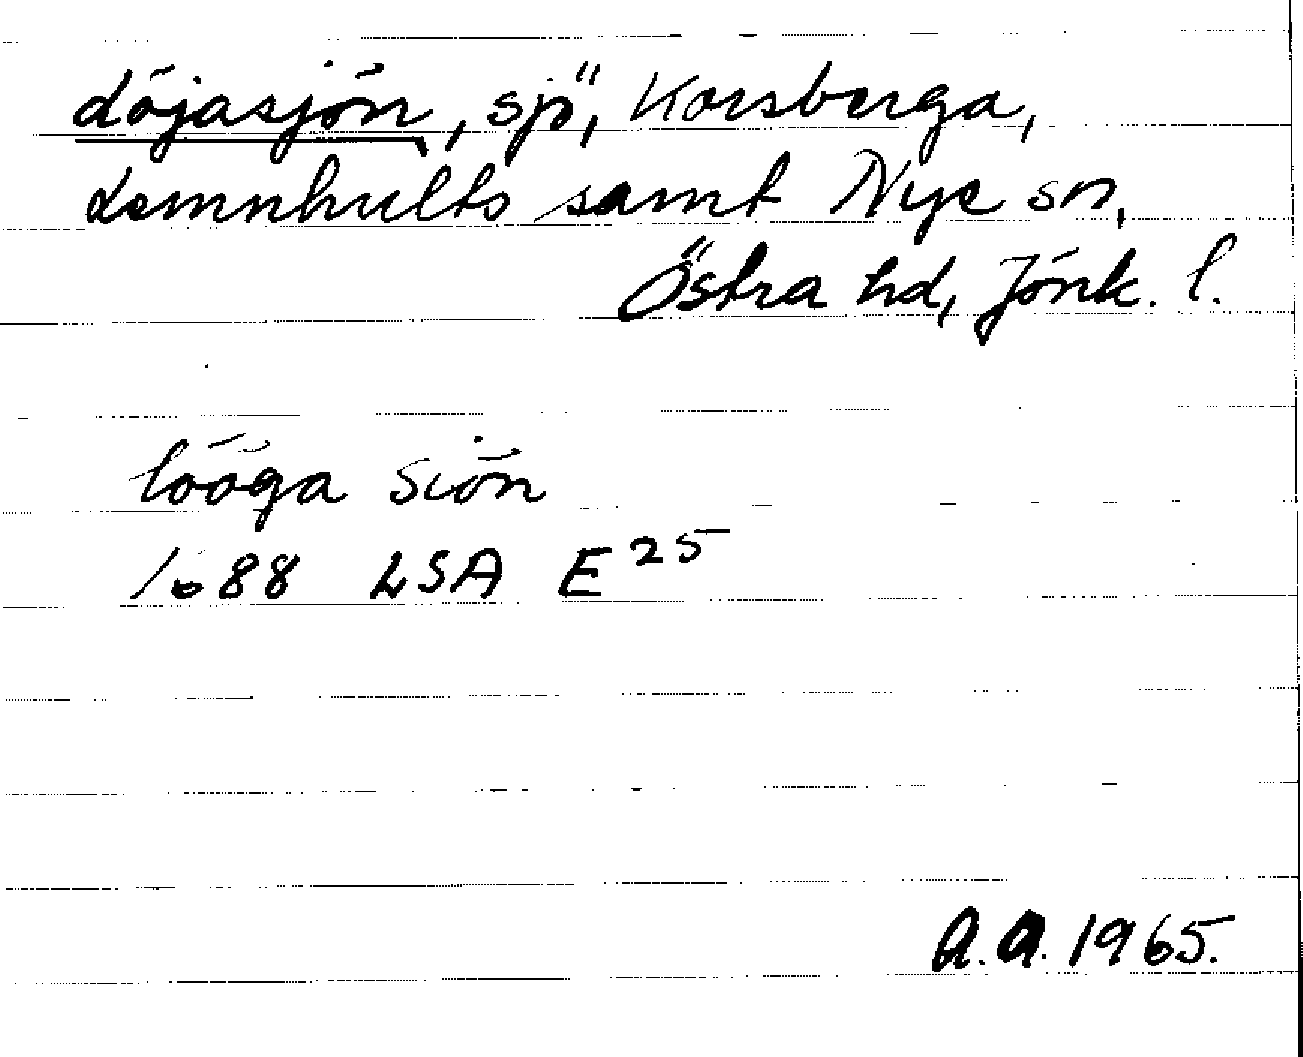 Löjasjön, sjö, Korsberga,
Lemnhults samt Nye sn,
Östra hd, Jönk. l.
lööga Siön
1688 LSA E 25
A.A. 1965.